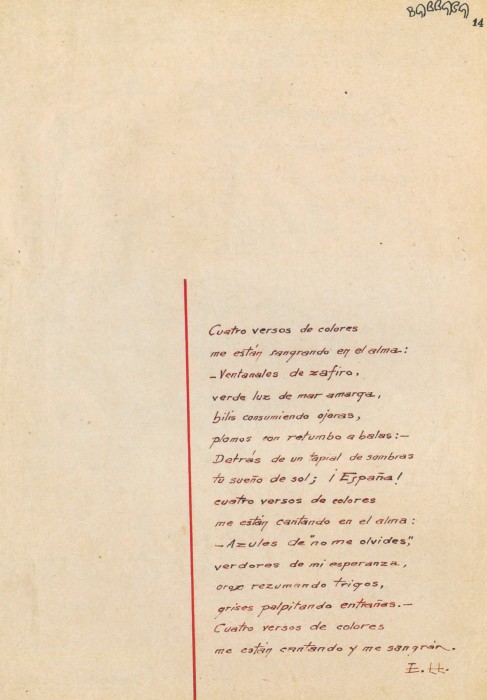 BARBARA
14
Cuatro versos de colores
me están sangrando en el alma:
-Ventanales de zafiro,
verde luz de mar amarga,
bilis consumiendo ojeras,
plomos con retumbo a balas:-
Detrás de un tapial de sombras
tu sueño de sol; ¡España!
cuatro versos de colores
me están cantando en el alma:
-Azules de "no me olvides",
verdores de mi esperanza,
oros rezumando trigos,
grises palpitando entrañas.-
Cuatro versos de colores
me están cantando y me sangrán.
E. Ll.